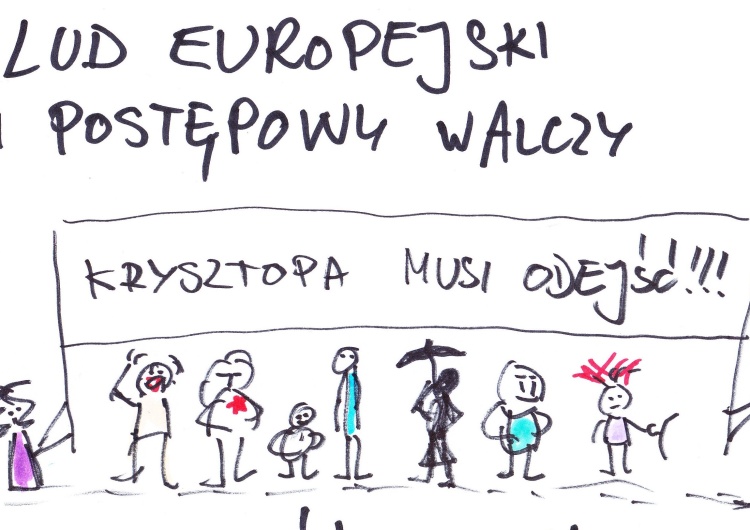 LUD EUROPEJSKI
I POSTĘPOWY WALCZY
KRYSZTOPA MUSI ODEJŚĆ!!!